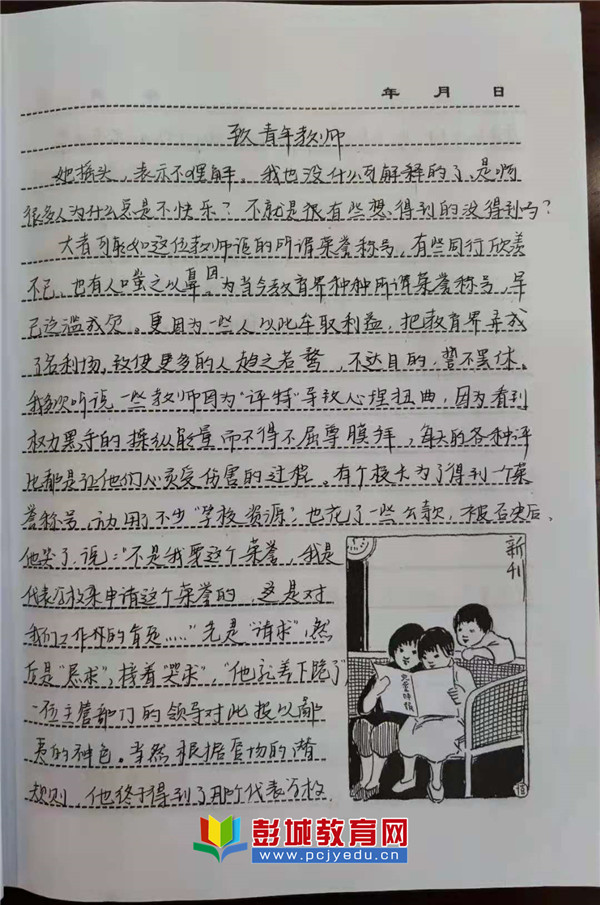 年 月 日
致青年教师
她摇头,表示不理解。我也没什么可解释的了,是啊
很多人为什么总是不快乐?不就是很有些想得到的没得到吗?
大者可能如这位教师追的所谓荣誉称号,有些同行欣羡
不已,也有人嗤之以鼻。因为当今教育界种种所谓荣誉称号,早
已泛滥成灾。更因为一些人以此牟取利益,把教育界弄成
了名利场,致使更多的人趋之若鹜,不达目的,誓不罢休。
我多次听说一些教师因为“评特”导致心理扭曲,因为看到
权力黑手的操纵能量而不得不屈尊膜拜,每天的各种评
比都是让他们心灵受伤害的过程。有个校长为了得到一个荣
誉称号,动用了不少“学校资源”也花了一些公款,被否决后,
他哭了,说:“不是我要这个荣誉,我是
代表学校来申请这个荣誉的,这是对
我们工作的肯定……”先是“请求”,然
后是“恳求”,接着“哭求”,“他就差下跪了”
一位主管部门的领导对此投以鄙
夷的神色。当然根据官场的潜
规则,他终于得到了那个代表学校
新刊
彭城教育网
www.pcjyedu.cn